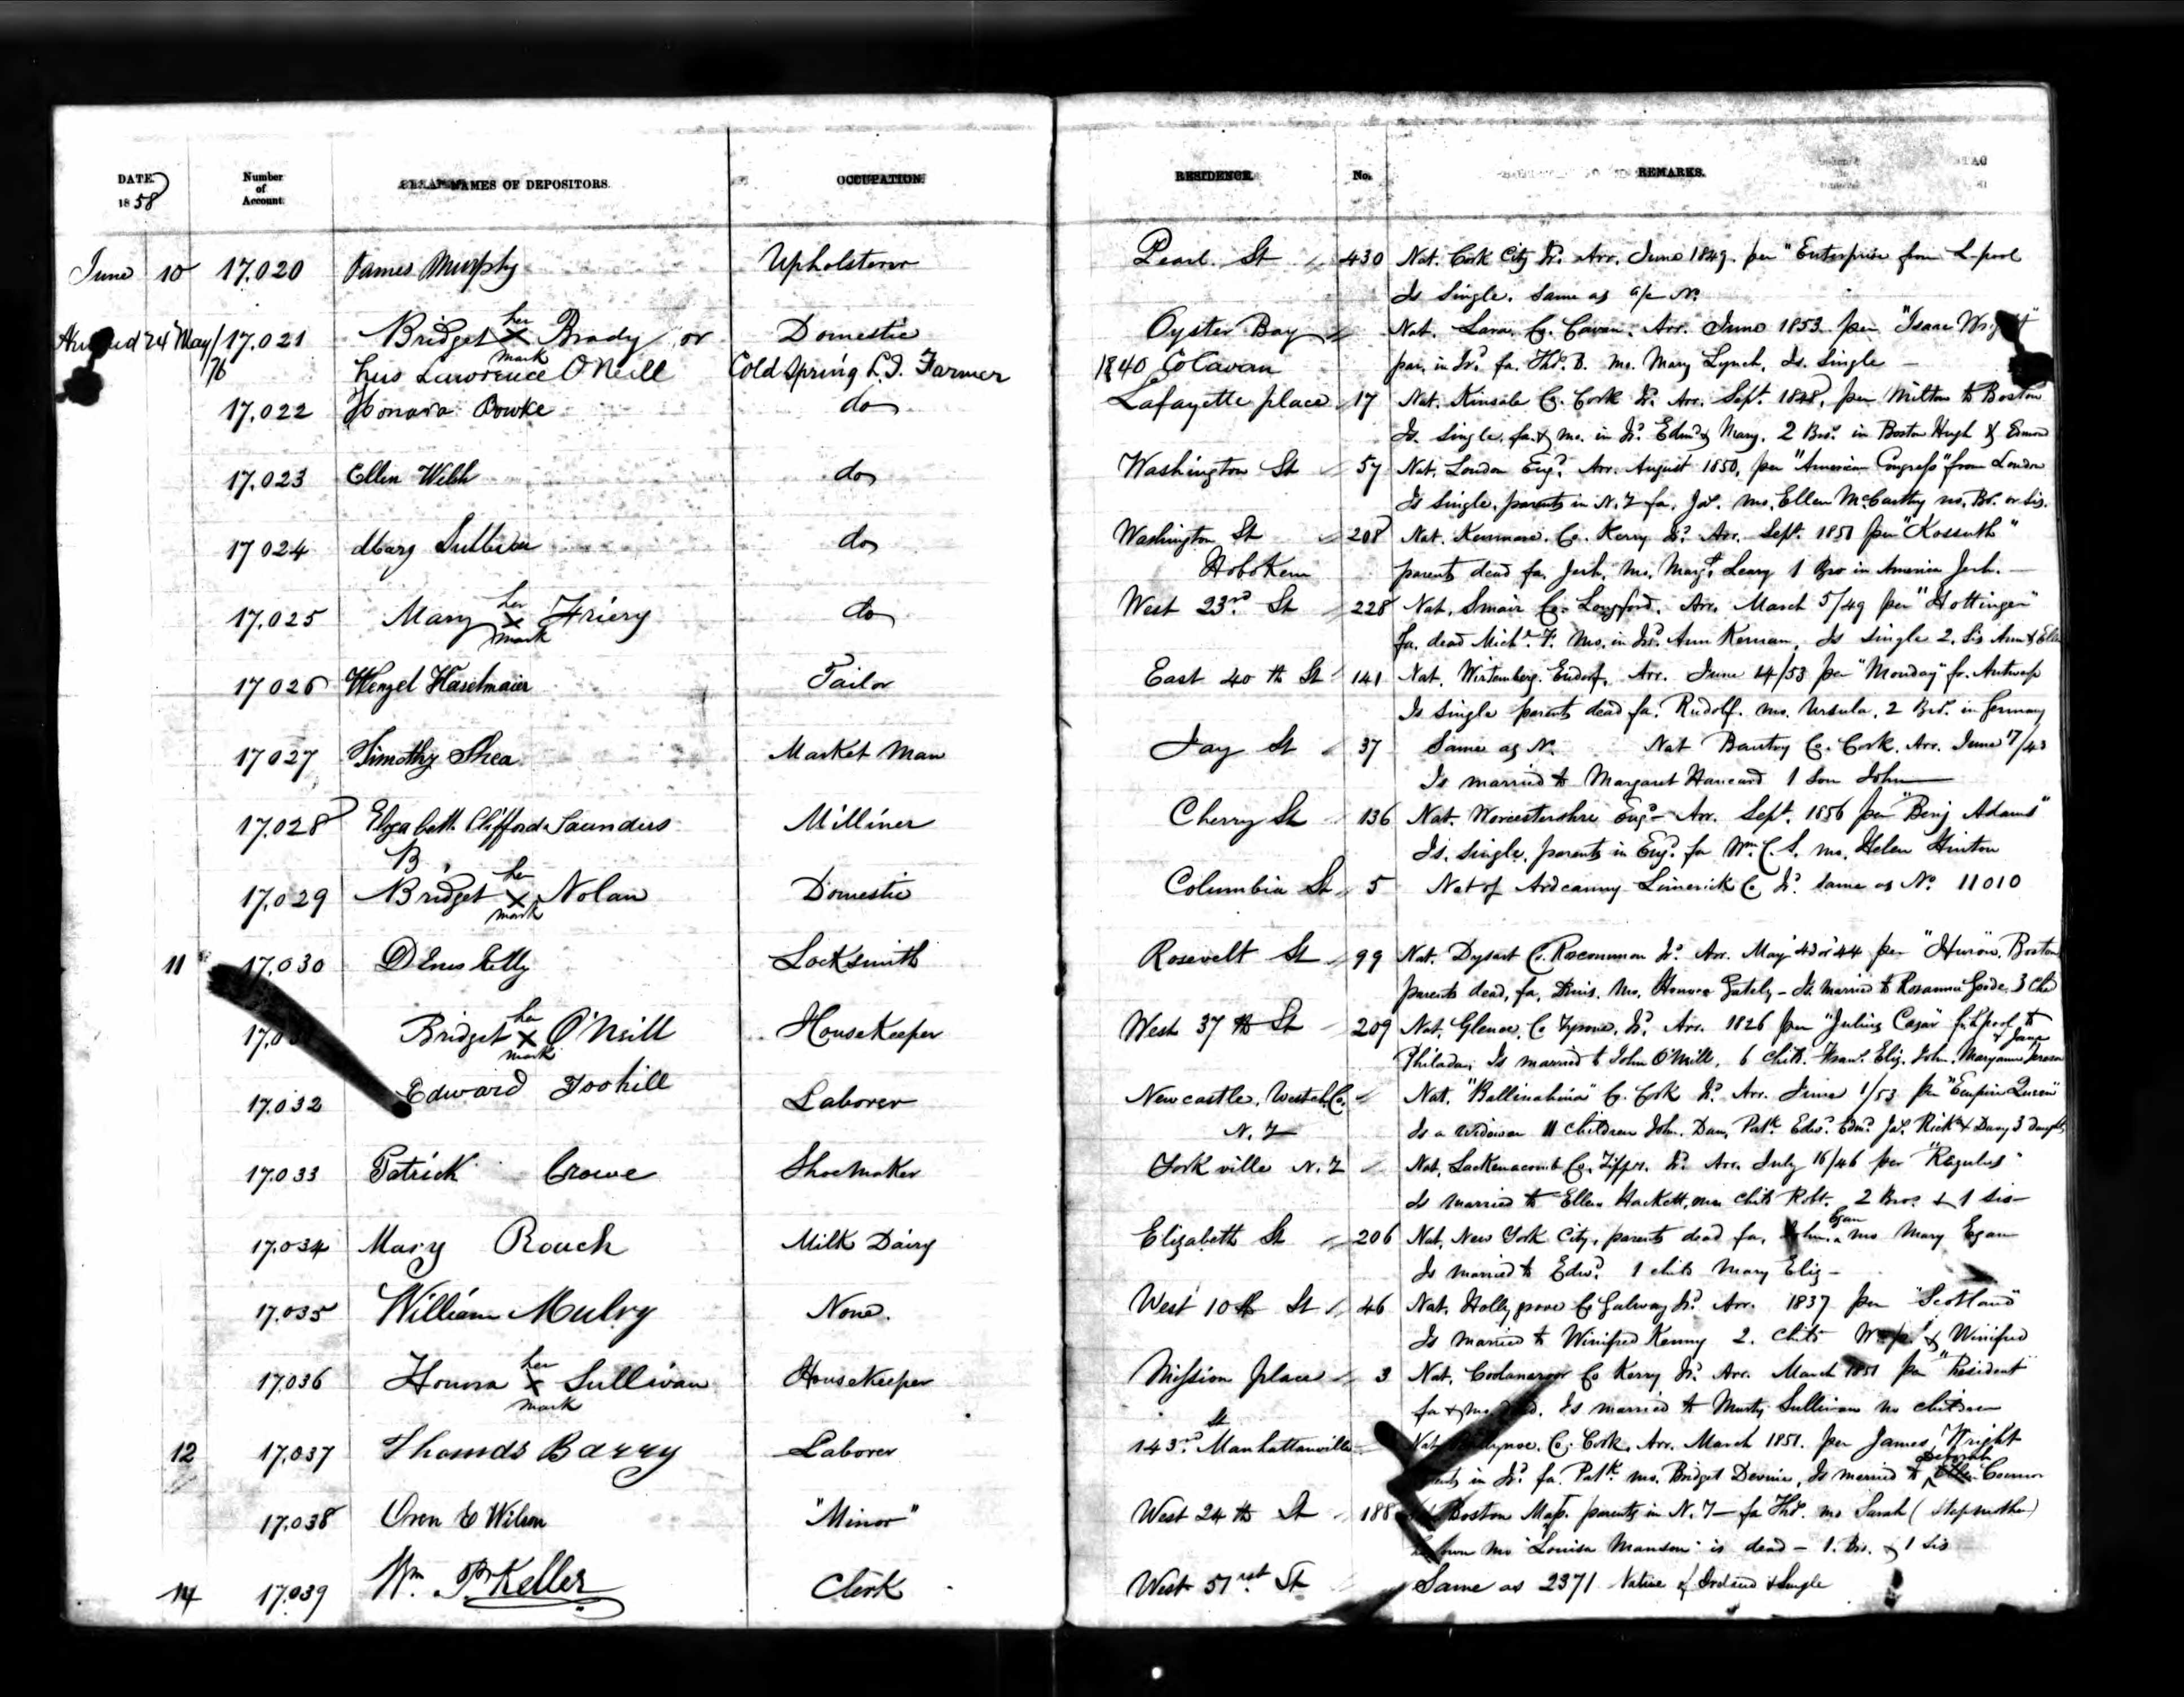 DATE. Number of Account. NAMES OF DEPOSITORS. OCCUPATION. RESIDENCE. No. REMARKS.
1858
June 10 17,020 James Murphy Upholsterer Pearl St 430 Nat. Cork City Ir. Arr. June 1849. per "Enterprise from L-pool
Is Single. Same as a/c No.
24 May/76 17,021 Bridget her x mark Brady or Domestic Oyster Bay Nat. Lara. Co. Cavan. Arr. June 1853. per "Isaac Wright"
Lawrence O'Neill Cold Spring L.I. Farmer 1840 Co Cavan par. in Ird. fa. Thos. B. mo. Mary Lynch. Is. Single
17,022 Honora Bowke do Lafayette place 17 Nat. Kinsale Co. Cork Ir. Arr. Sept. 1848, per Milton to Boston
Is. Single. fa. & mo. in Ird. Edmd. & Mary. 2 Bros. in Boston Hugh & Edmond
17,023 Ellen Webb do Washington St 57 Nat. London Engd. Arr. August 1850, per "American Congress" from London
Is single. parents in N.Y. fa. Jas. mo. Ellen McCarthy no. Br. or Sis.
17024 Mary Sullivan do Washington St 208 Nat. Kenmare. Co. Kerry Ird. Arr. Sept. 1851 per "Kossuth"
Hoboken parents dead fa. Jerh. mo. Margt. Leary 1 Bro in America Jerh.
17,025 Mary her x mark Friery do West 23rd. St 228 Nat. Co. Longford. Arr. March 5/49 per "Hottinger"
fa. dead Michl. F. Mo. in Ird. Ann Kernan. Is single 2. Sis Ann & Ellen
17026 Wenzel Haselmaier Tailor East 40 th St 141 Nat. Wirtemberg. Arr. June 14/53 per "Monday" fr. Antwerp
Is Single parents dead fa. Rudolf. mo. Ursula. 2 Brs. in Germany
17027 Timothy Shea Market Man Jay St 37 Same as No. Nat Bantry Co. Cork. Arr. June 7/43
Is married to Margaret 1 Son John
17,028 Elizabeth Clifford Saunders Milliner Cherry St 136 Nat. Worcestershire Engd. Arr. Sept. 1856 per "Benj Adams"
B Is. Single. parents in Engd. fa Wm. C. S. mo. Helen Hinton
17,029 Bridget her x mark Nolan Domestic Columbia St 5 Nat of Ardcanny Limerick Co Ird. same as No. 11010
11 17,030 Denis Locksmith Rosevelt St 99 Nat. Dysart Co. Roscommon Ird. Arr. May 43 or 44 per "Huron". Boston
parents dead, fa, Denis. mo. Honora Gately - Is. married to Rosanna 3 Chd
Bridget her x mark O'Neill Housekeeper West 37 th St 209 Nat. Co Tyrone. Ird. Arr. 1826 per "Julius Casar" fr. Lpool to
Philada. Is married to John O'Neill. 6 Chil. Eliz. John. Maryanne Teresa & Jane
17.032 Edward Toohill Laborer Newcastle. Westch. Co. Nat. "Ballinahina" Co. Cork Ird. Arr. June 1/53 per "Empire Queen"
N.Y Is a Widower 11 Children John. Dan. Patk. Edwd. Edmd. Jas. Richd & Davy 3 daughs
17.033 Patrick Crowe Shoe Maker York ville N.Y Nat. Co. Tippr. Ird. Arr. July 16/46 per "Regulus"
Is married to Ellen Hackett, one child Robt. 2 Bros. & 1 Sis
17.034 Mary Rouch Milk Dairy Elizabeth St 206 Nat. New York City, parents dead fa, John Egan mo Mary Egan
Is married to Edwd. 1 child Mary Eliz -
17.035 William Mulry None. West 10 th St 46 Nat. Holly grove Co Galway Ird. Arr. 1837 per "Scotland"
Is married to Winifred Kenny 2. Chil & Winifred
17,036 Honora her x mark Sullivan Housekeeper Mission place 3 Nat. Co Kerry Ird. Arr. March 1851 per "President"
fa & mo dead. Is married to Murty Sullivan no children
12 17,037 Thomas Barry Laborer 143rd. St Manhattanville Co. Cork. Arr. March 1851. per James Wright
in Ird. fa. Patk. mo. Bridget Devine, Is married to Deborah Connor
17.038 Oren E Wilson "Minor" West 24 th St 188 Boston Mass. parents in N.Y - fa Thos. mo Sarah (Stepmother)
own mo Louisa Manson is dead - 1. Bro. & 1 Sis
14 17.039 Wm. P Keller Clerk West 51 st St Same as 2371 Native of Ireland & Single